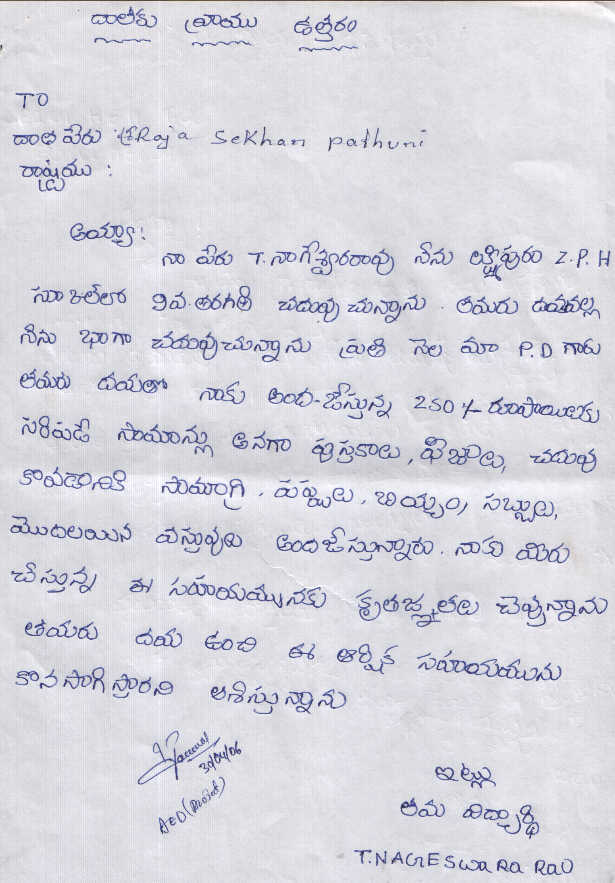 దాతకు వ్రాయు ఉత్తరం
TO
దాత పేరు శ్రీ Raja Sekhar Pathuri
రాష్ట్రము :
అయ్యా!
నా పేరు T. నాగేశ్వరరావు నేను లక్ష్మీపురం Z.P.H
స్కూల్‌లో 9వ తరగతి చదువు చున్నాను. తమరు దయవల్ల
నేను భాగా చదువు చున్నాను ప్రతి నెల మా P.D గారు
తమరు దయతో నాకు అంద-జేస్తున్న 250/- రూపాయిలకు
సరిపడే సామాన్లు అనగా పుస్తకాలు, ఫీజులు, చదువు
కొవడానికి సామాగ్రి, పప్పులు, బియ్యం, సబ్బులు,
మొదలయిన వస్తువులు అందజేస్తున్నారు. నాకు మీరు
చేస్తున్న ఈ సహాయమునకు కృతజ్ఞతలు చెప్తున్నాను
తమరు దయ ఉంచి ఈ ఆర్థిక సహాయమును
కొనసాగిస్తారని ఆశిస్తున్నాను
30/04/06
AED (Project)
ఇట్లు
తమ విద్యార్థి
T. NAGESWARA RAO